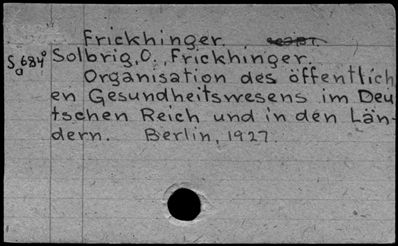 Frickhinger.
S 684°
a
Solbrig, O., Frickhinger.
Organisation des öffentlich
en Gesundheitswesens im Deu
tschen Reich und in den Län-
dern. Berlin, 1927.